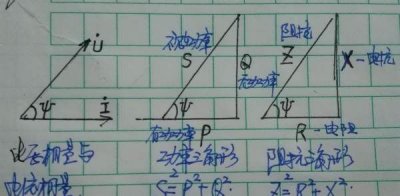 U̇
ψ
İ
电压相量与
电流相量
视在功率
S
Q
无功功率
ψ
有功功率 P
功率三角形
S²=P²+Q²
阻抗
Z
X-电抗
ψ
R-电阻
阻抗三角形
Z²=R²+X²